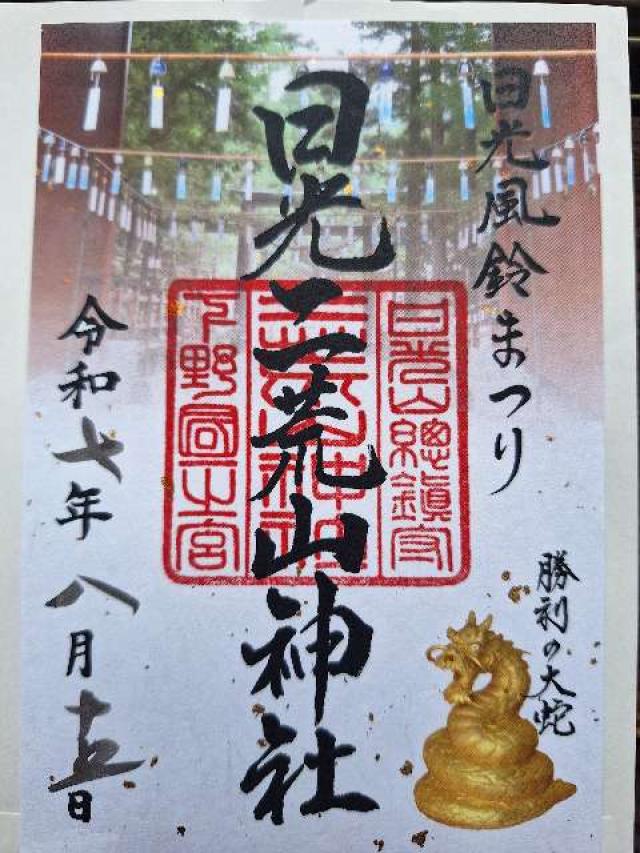 日光風鈴まつり
勝利の大蛇
日光二荒山神社
日光山總鎮守
二荒山神社
下野國一之宮
令和七年八月十五日